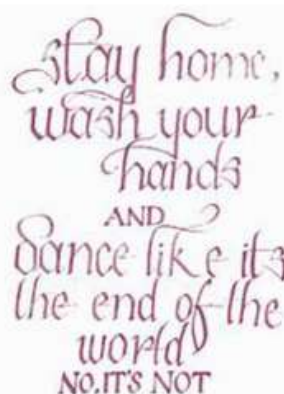 stay home,
wash your
hands
AND
dance like its
the end of the
world
NO, IT'S NOT